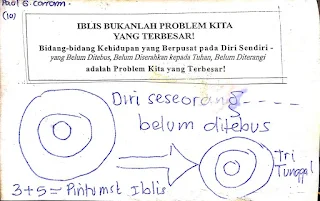 Paul G. Corrom.
(10)
IBLIS BUKANLAH PROBLEM KITA
YANG TERBESAR!
Bidang-bidang Kehidupan yang Berpusat pada Diri Sendiri -
yang Belum Ditebus, Belum Diserahkan kepada Tuhan, Belum Diterangi
adalah Problem Kita yang Terbesar!
Diri seseorang
belum ditebus
Tri
Tunggal
3+5= Iblis